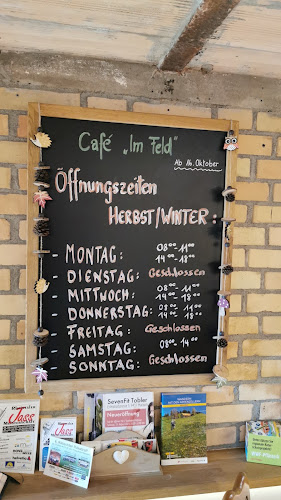 Café „Im Feld"
Ab 16. Oktober
Öffnungszeiten
HERBST/WINTER:
- MONTAG: 08⁰⁰-11⁰⁰
14⁰⁰-18⁰⁰
- DIENSTAG: Geschlossen
- MITTWOCH: 08⁰⁰-11⁰⁰
14⁰⁰-18⁰⁰
- DONNERSTAG: 08⁰⁰-11⁰⁰
14⁰⁰-18⁰⁰
- FREITAG: Geschlossen
- SAMSTAG: 08⁰⁰-14⁰⁰
- SONNTAG: Geschlossen
SevenFit Tobler
Neueröffnung
Jass
Jass